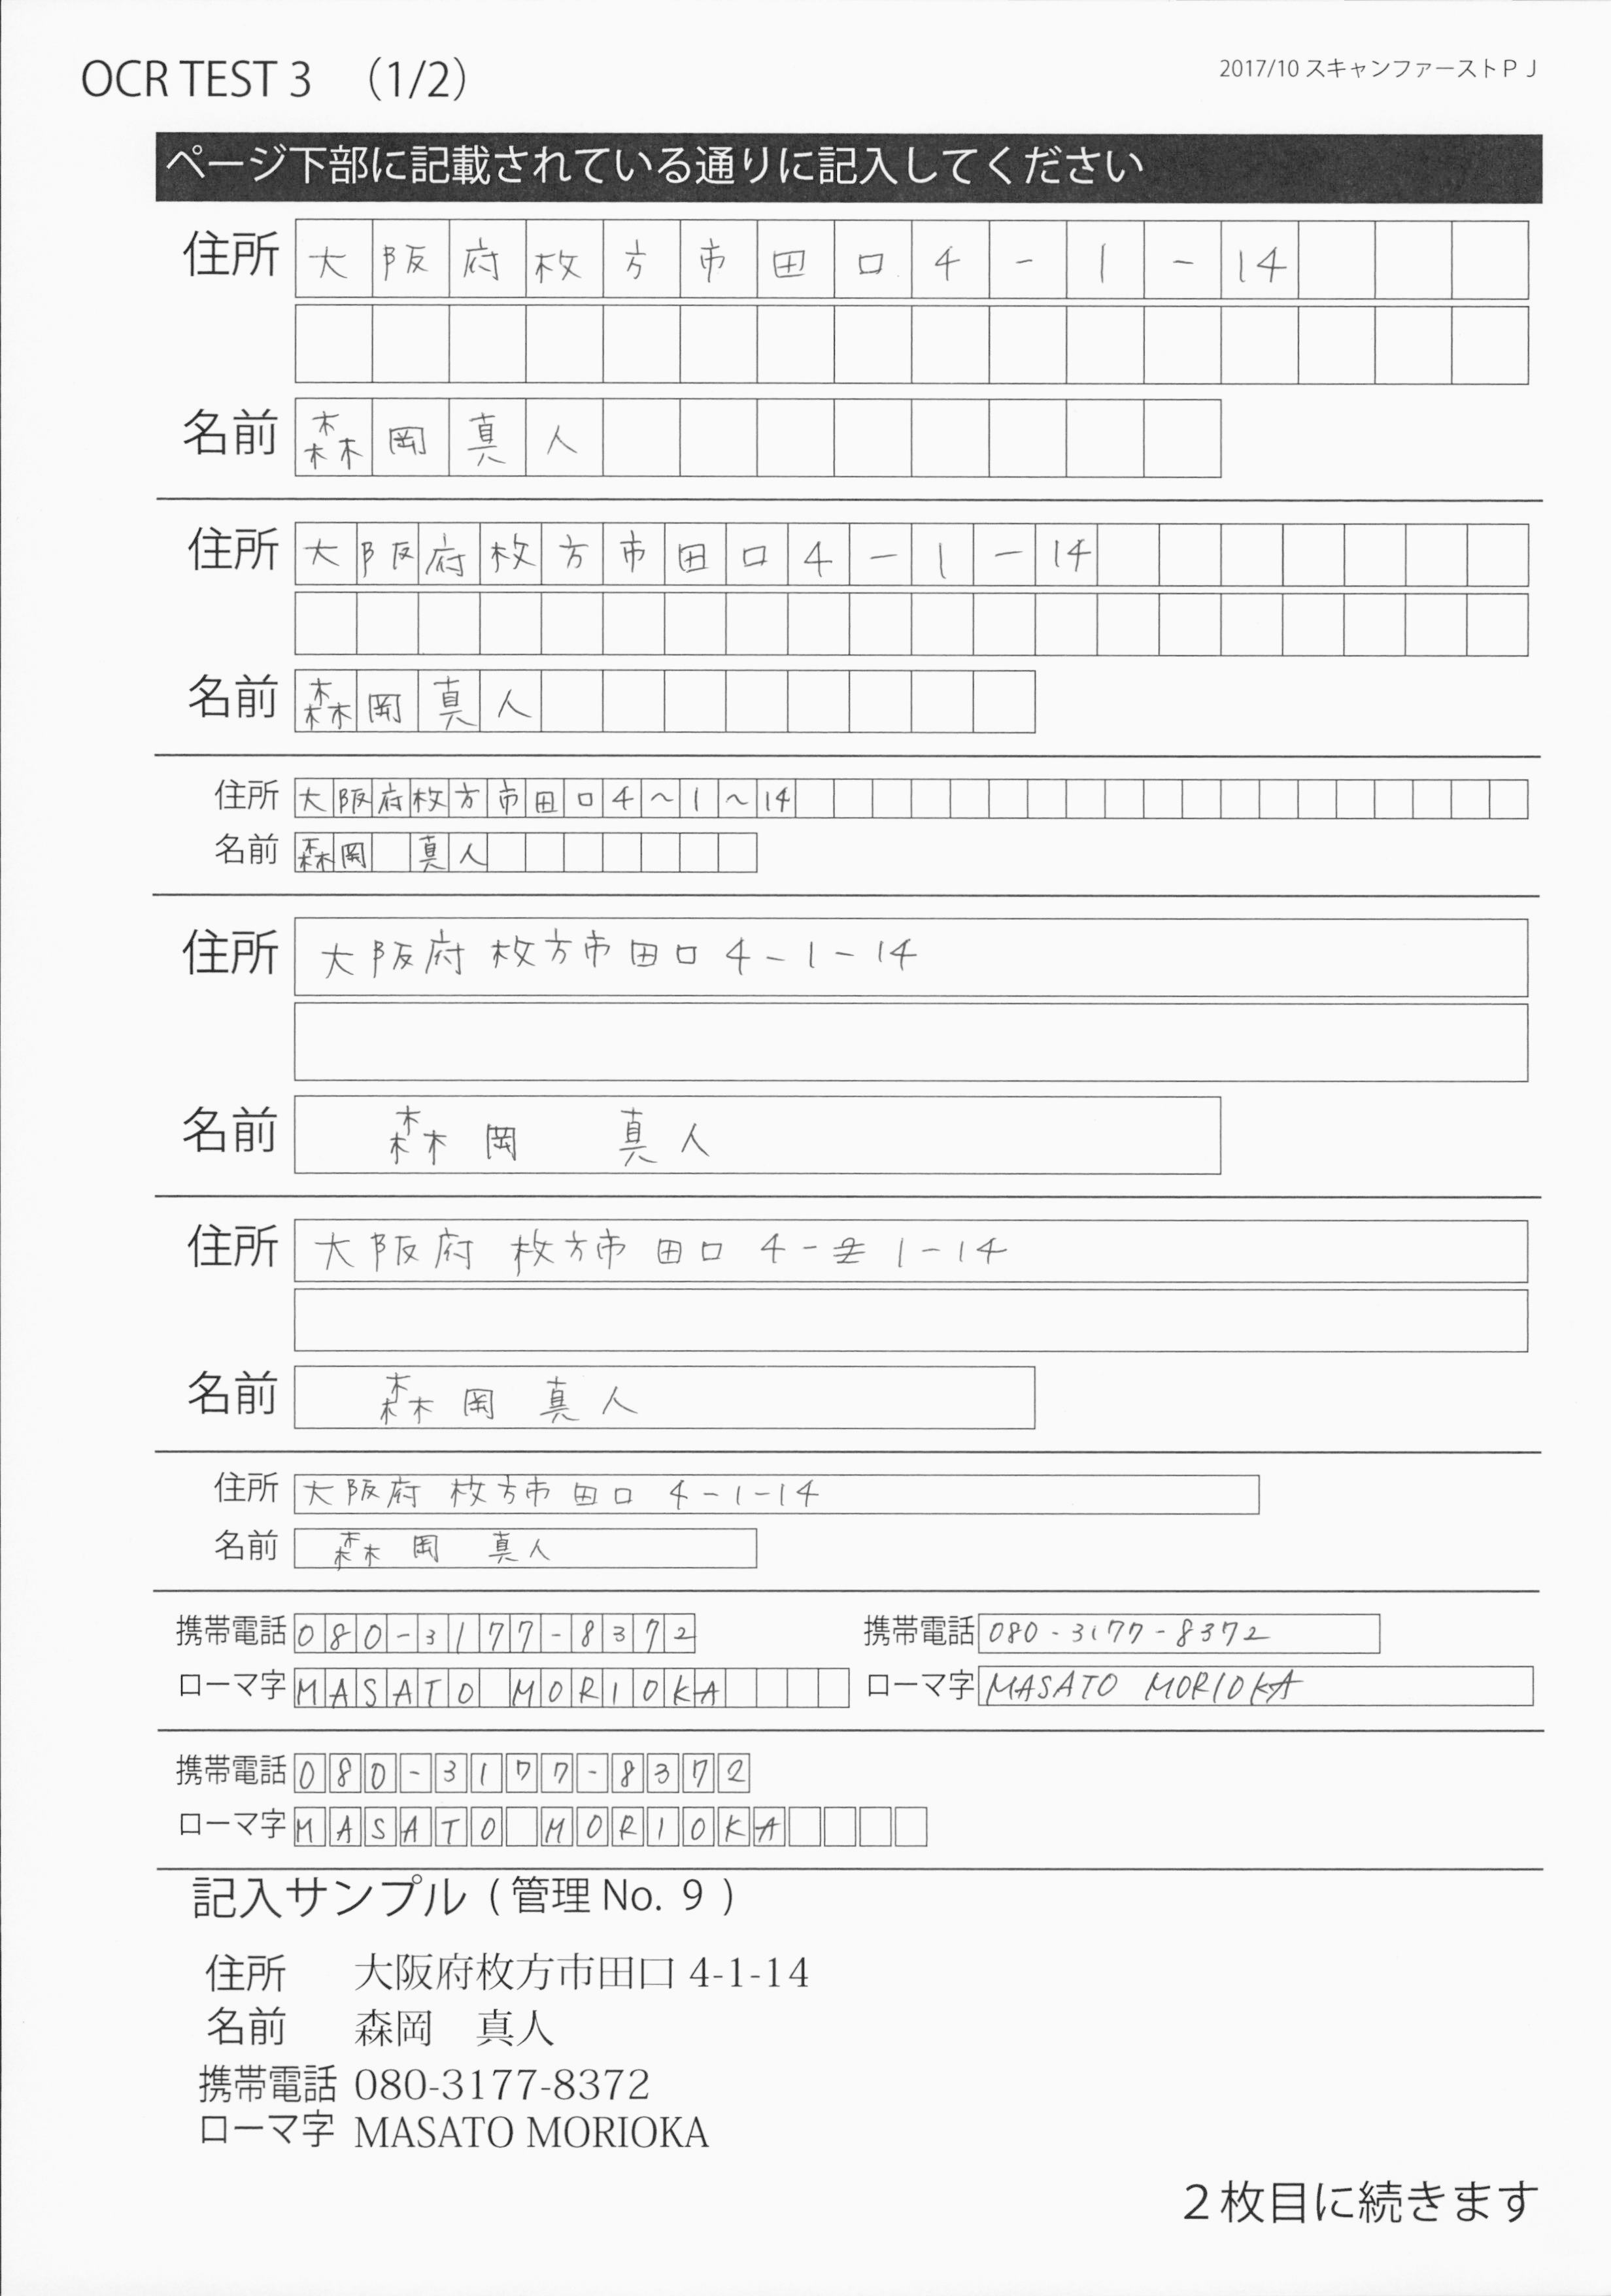 OCR TEST 3 （1/2）
2017/10 スキャンファーストＰＪ
ページ下部に記載されている通りに記入してください
住所 大阪府枚方市田口4-1-14
名前 森岡真人
住所 大阪府枚方市田口4-1-14
名前 森岡真人
住所 大阪府枚方市田口4~1~14
名前 森岡 真人
住所 大阪府枚方市田口4-1-14
名前 森岡 真人
住所 大阪府 枚方市 田口 4-1-14
名前 森岡 真人
住所 大阪府 枚方市 田口 4-1-14
名前 森岡 真人
携帯電話 080-3177-8372 携帯電話 080-3177-8372
ローマ字 MASATO MORIOKA ローマ字 MASATO MORIOKA
携帯電話 080-3177-8372
ローマ字 MASATO MORIOKA
記入サンプル ( 管理 No. 9 )
住所 大阪府枚方市田口 4-1-14
名前 森岡　真人
携帯電話 080-3177-8372
ローマ字 MASATO MORIOKA
２枚目に続きます